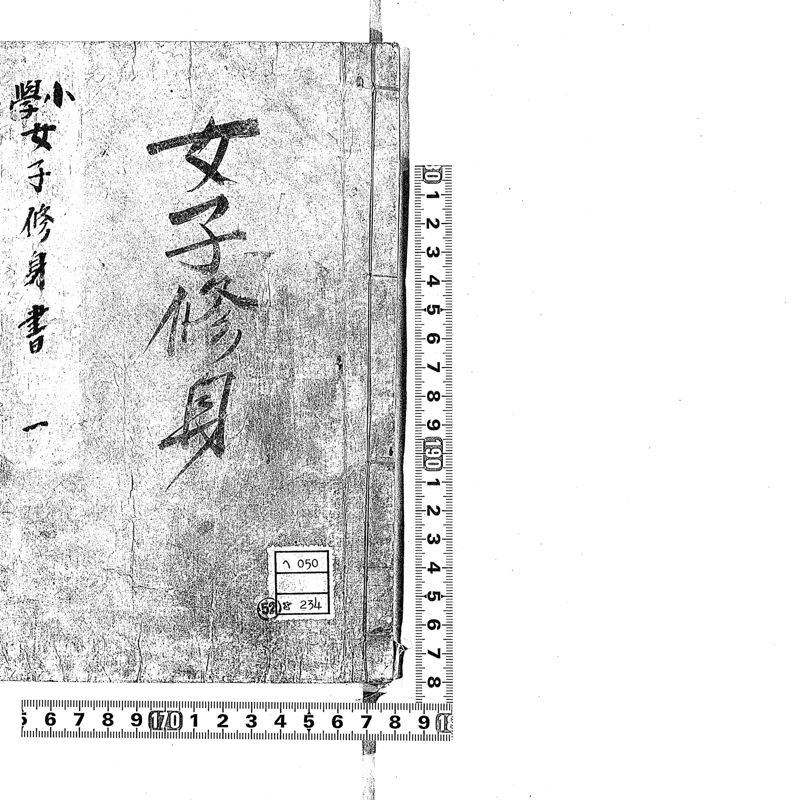 女子修身
小學女子修身書 一
ヘ 050
234
52
0 1 2 3 4 5 6 7 8 9 190 1 2 3 4 5 6 7 8
5 6 7 8 9 170 1 2 3 4 5 6 7 8 9 18